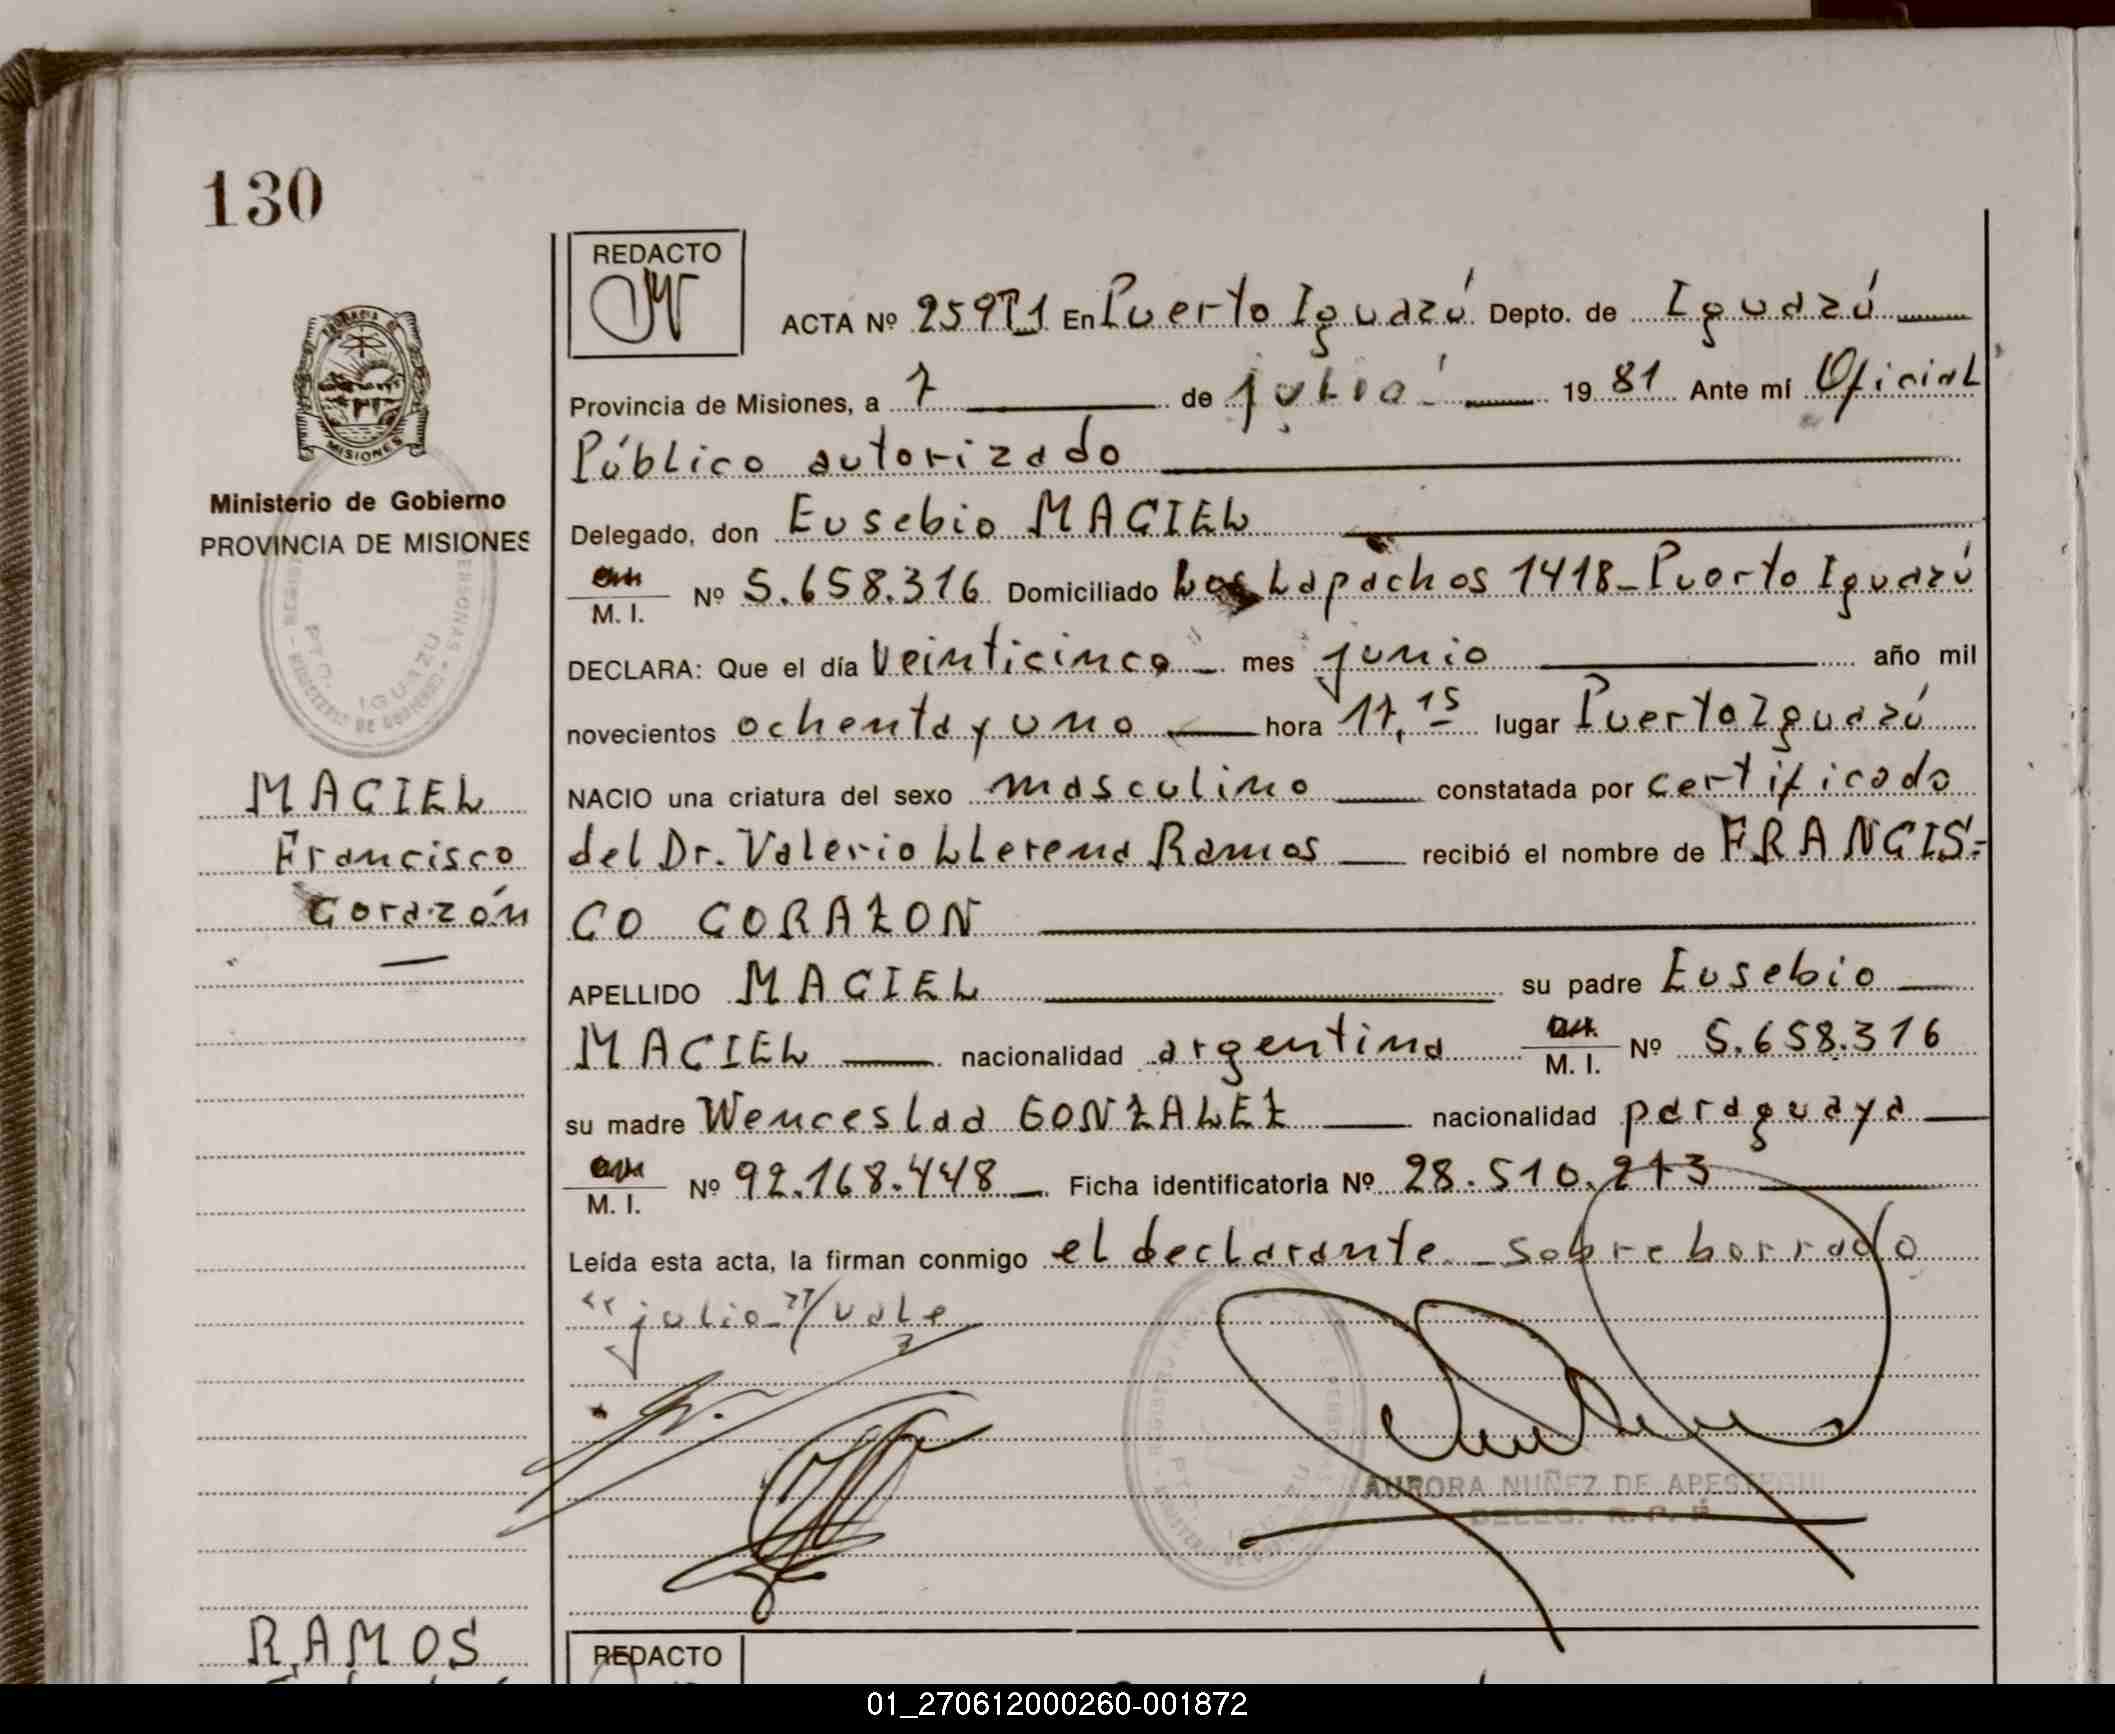 130
REDACTO
ACTA Nº 259T1 En Puerto Iguazú Depto. de Iguazú
Provincia de Misiones, a 7 de julio 1981 Ante mí Oficial
Público autorizado
Delegado, don Eusebio MACIEL
M. I. Nº 5.658.316 Domiciliado Los Lapachos 1418 - Puerto Iguazú
DECLARA: Que el día veinticinco mes junio año mil
novecientos ochenta y uno hora 17,15 lugar Puerto Iguazú
NACIO una criatura del sexo masculino constatada por certificado
del Dr. Valerio Llerena Ramos recibió el nombre de FRANCIS=
CO CORAZON
APELLIDO MACIEL su padre Eusebio
MACIEL nacionalidad argentina M. I. Nº 5.658.316
su madre Wenceslaa GONZALEZ nacionalidad paraguaya
M. I. Nº 92.168.448 Ficha identificatoria Nº 28.510.273
Leída esta acta, la firman conmigo el declarante - sobre borrado
"julio"/vale
AURORA NUÑEZ DE APESTEGUI
DELEG. R. P. P.
REDACTO
MISIONES
Ministerio de Gobierno
PROVINCIA DE MISIONES
PTO. IGUAZU
MACIEL
Francisco
Corazón
RAMOS
01_270612000260-001872